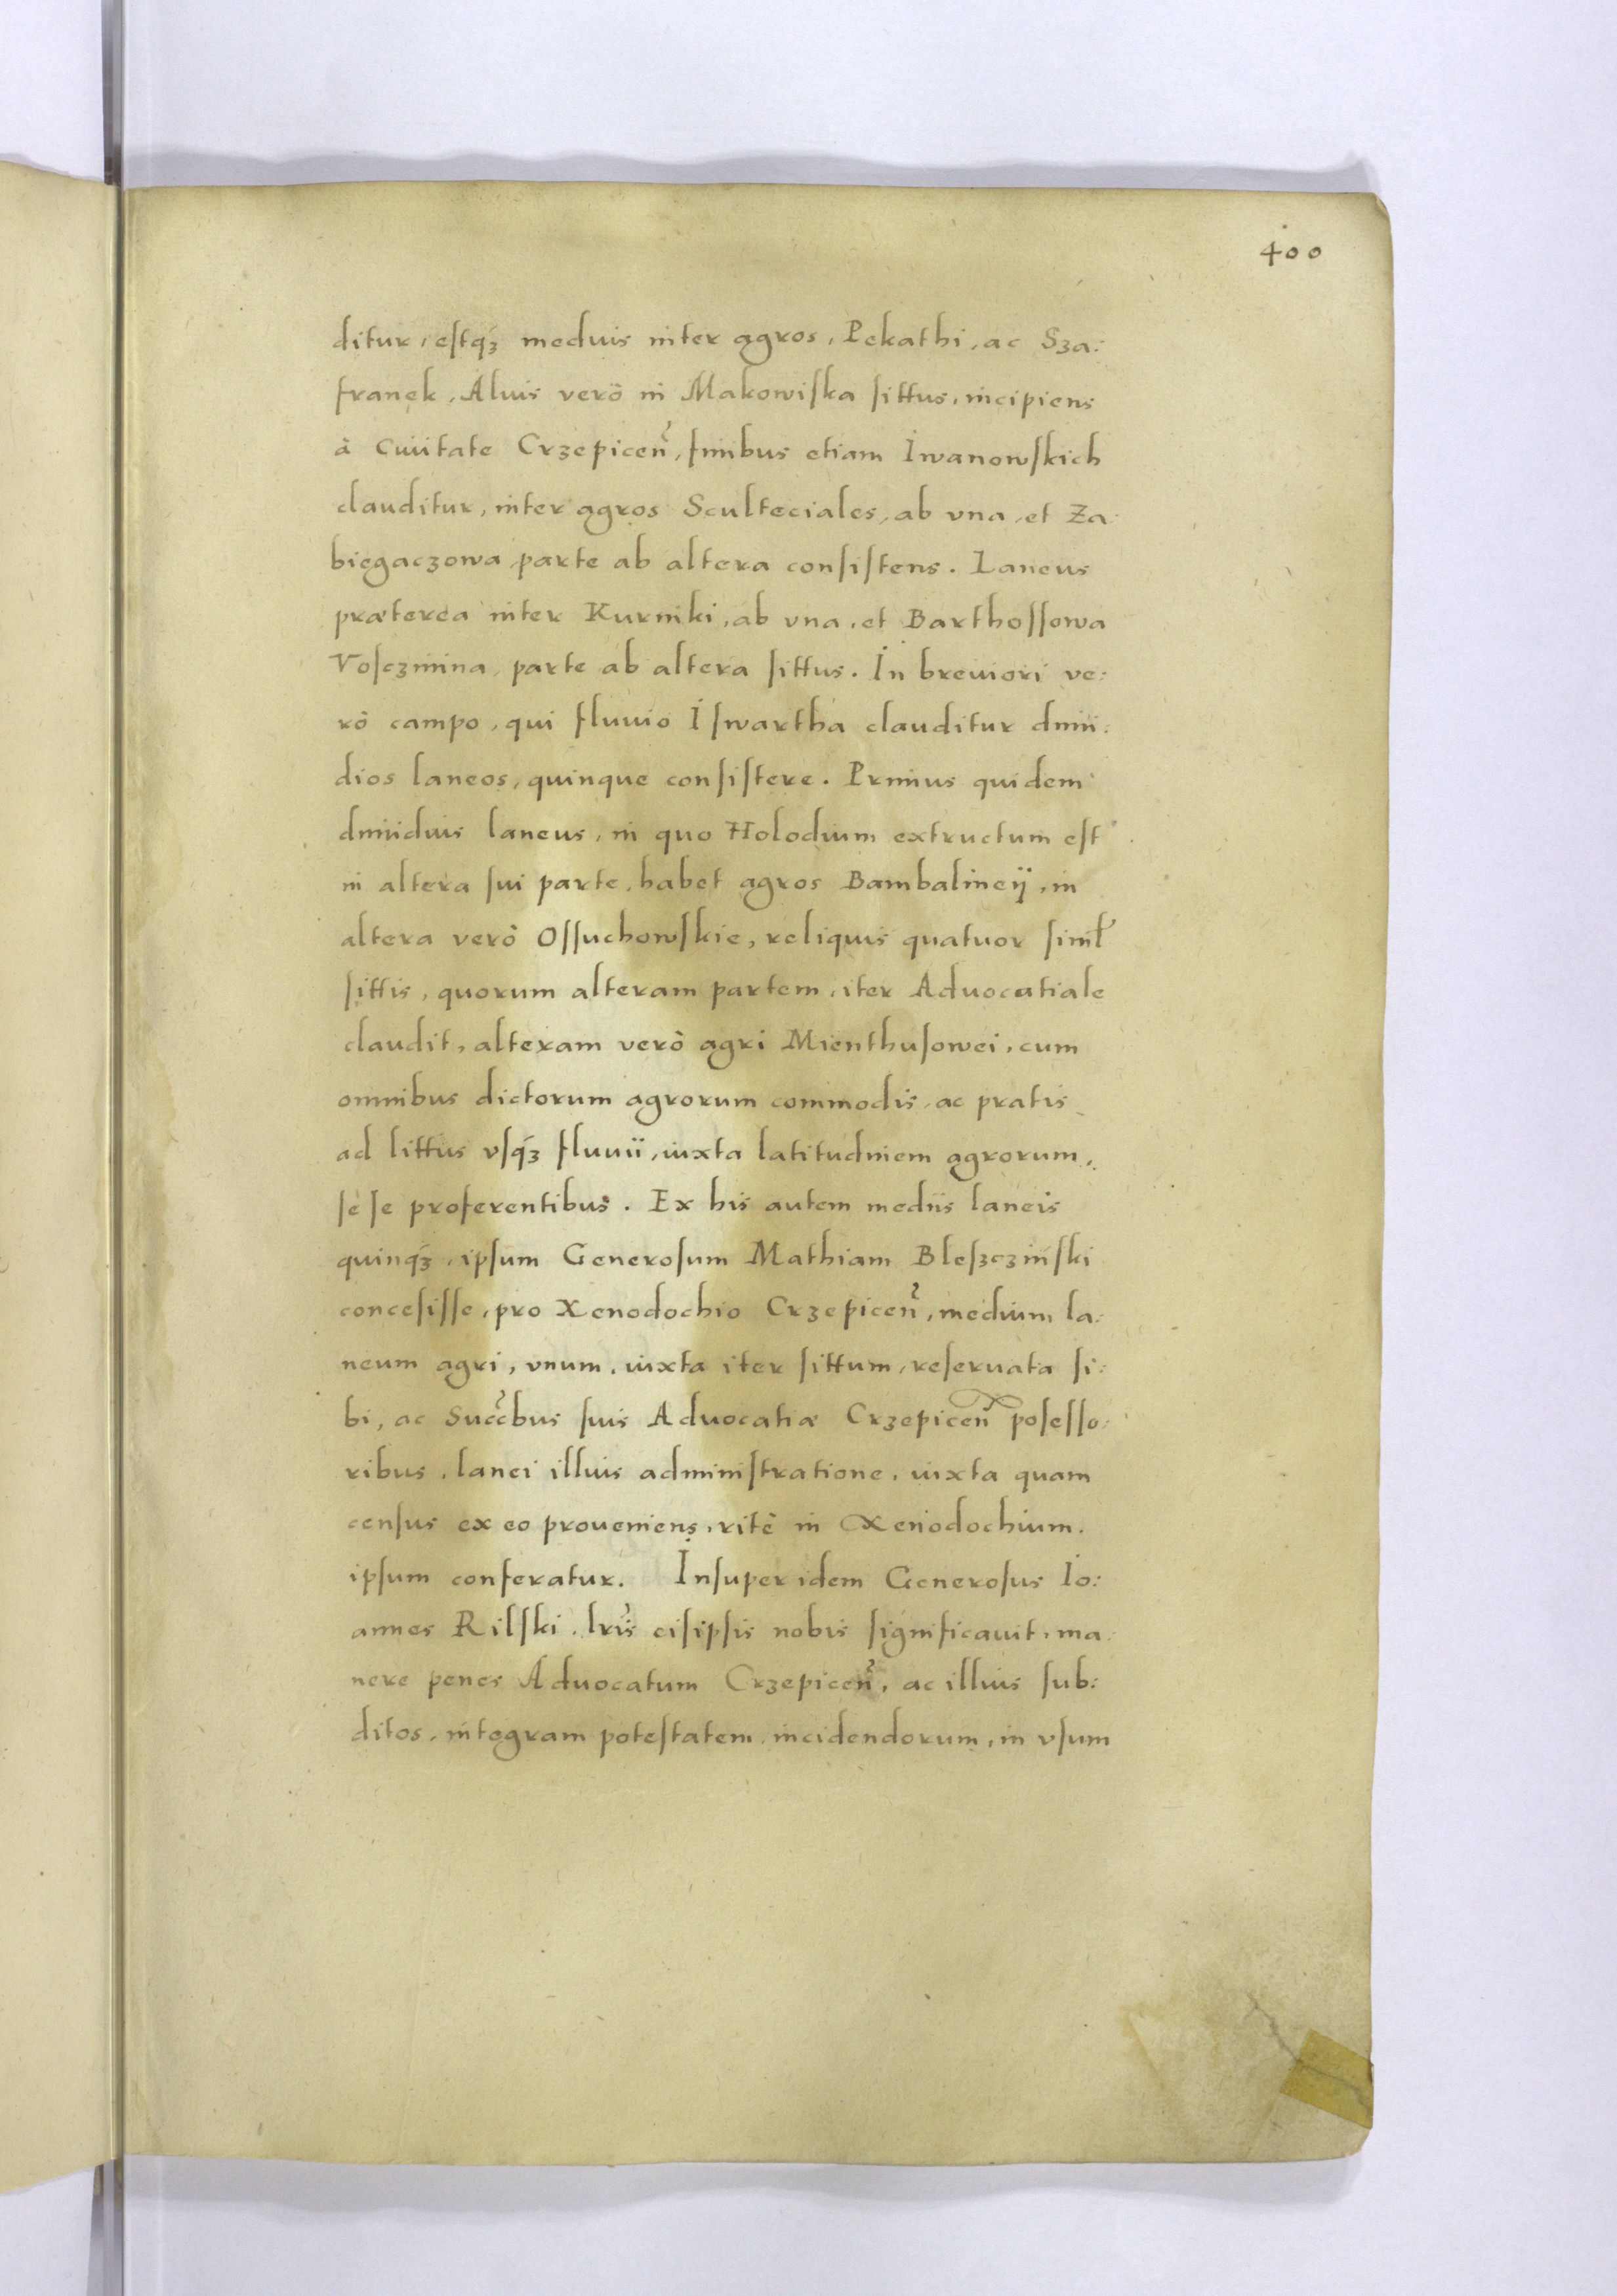 400
ditur, estq́ꝫ medius inter agros, Pekathi, ac Sza:
franek, Alius verò in Makowiska sittus, incipiens
à Ciuitate Crzepiceñ, finibus etiam Iwanowskich
clauditur, inter agros Sculteciales, ab vna, et Za:
biegaczowa parte ab altera consistens. Laneus
præterea inter Kurniki, ab vna, et Barthossowa
Vosczinina, parte ab altera sittus. In breuiori ve:
rò campo, qui fluuio Iswartha clauditur dimi:
dios laneos, quinque consistere. Primus quidem
dimidius laneus, in quo Holodium extructum est
in altera sui parte, habet agros Bambalincij, in
altera verò Ossuchowskie, reliquis quatuor simił
sittis, quorum alteram partem, iter Aduocatiale
claudit, alteram verò agri Mienthusowei, cum
omnibus dictorum agrorum commodis, ac pratis
ad littus vsq́ꝫ fluuii, iuxta latitudinem agrorum,
sese proferentibus. Ex his autem mediis laneis
quinq́ꝫ, ipsum Generosum Mathiam Bleszczinski
concesisse, pro Xenodochio Crzepiceñ, medium la:
neum agri, vnum, iuxta iter sittum, reseruata si:
bi, ac Succ̃bus suis Aduocatiæ Crzepiceñ posesso:
ribus, lanei illius administratione, iuxta quam
census ex eo proueniens, ritè in Xenodochium
ipsum conferatur. Insuper idem Generosus Io:
annes Rilski, lr̃is eisipsis nobis significauit, ma:
nere penes Aduocatum Crzepiceñ, ac illius sub:
ditos, integram potestatem incidendorum, in vsum